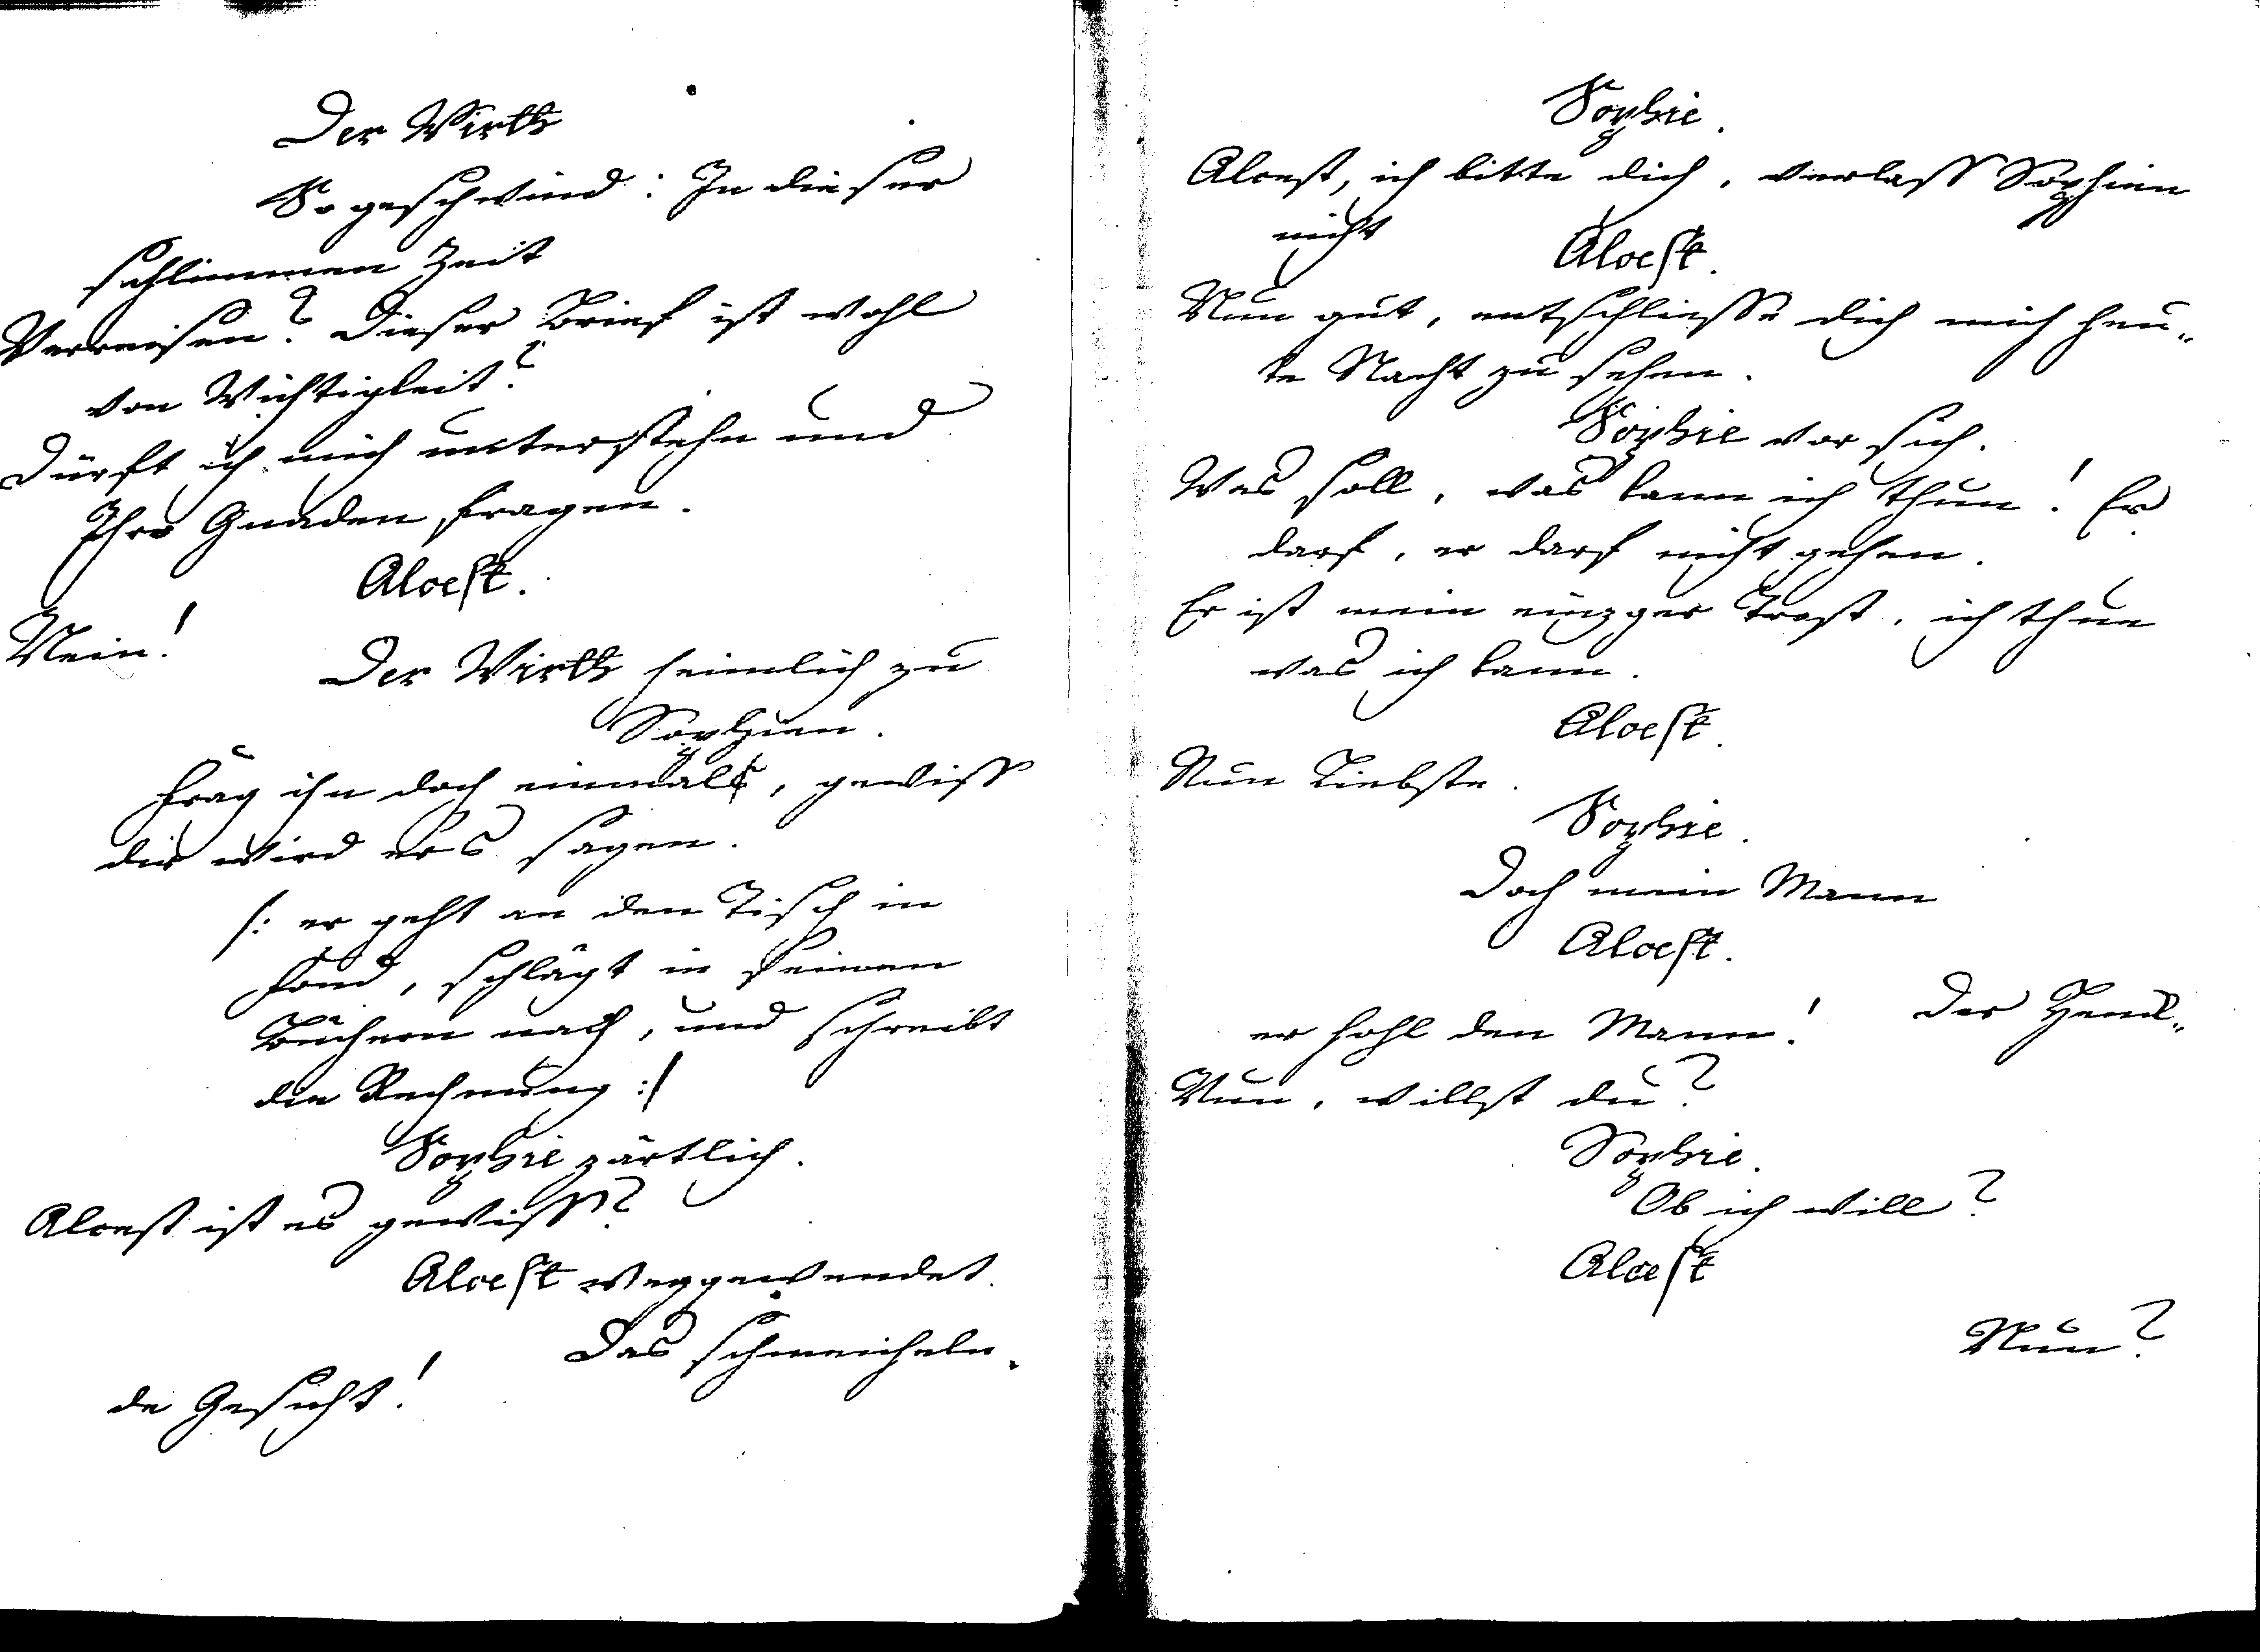 Der Wirth
So geschwind: In dieser
schlimmen Zeit
Verreisen? Dieser Brief ist wohl
von Wichtigkeit?
Dürft ich mich unterstehn und
Ihro Gnaden fragen.
Alcest.
Nein!
Der Wirth heimlich zu
Sophien.
Frag ihn doch einmal, gewiss
dir wird er's sagen.
/: er geht an den Tisch in
Fond, schlägt in seinen
Büchern nach, und schreibt
die Rechnung :/
Sophie zärtlich.
Alcest ist es gewiss?
Alcest weggewendet.
Das schmeicheln-
de Gesicht!
Sophie.
Alcest, ich bitte dich, verlass Sophien
nicht
Alcest.
Nun gut, entschliesse dich mich heu-
te Nacht zu sehen.
Sophie vor sich.
Was soll, was kann ich thun! Er
darf, er darf nicht gehen.
Er ist mein einzger Trost, ich thue
was ich kann.
Alcest.
Nun Liebste.
Sophie.
Doch mein Mann
Alcest.
Der Henck-
er hohl den Mann!
Nun, willst du?
Sophie.
Ob ich will?
Alcest
Nun?